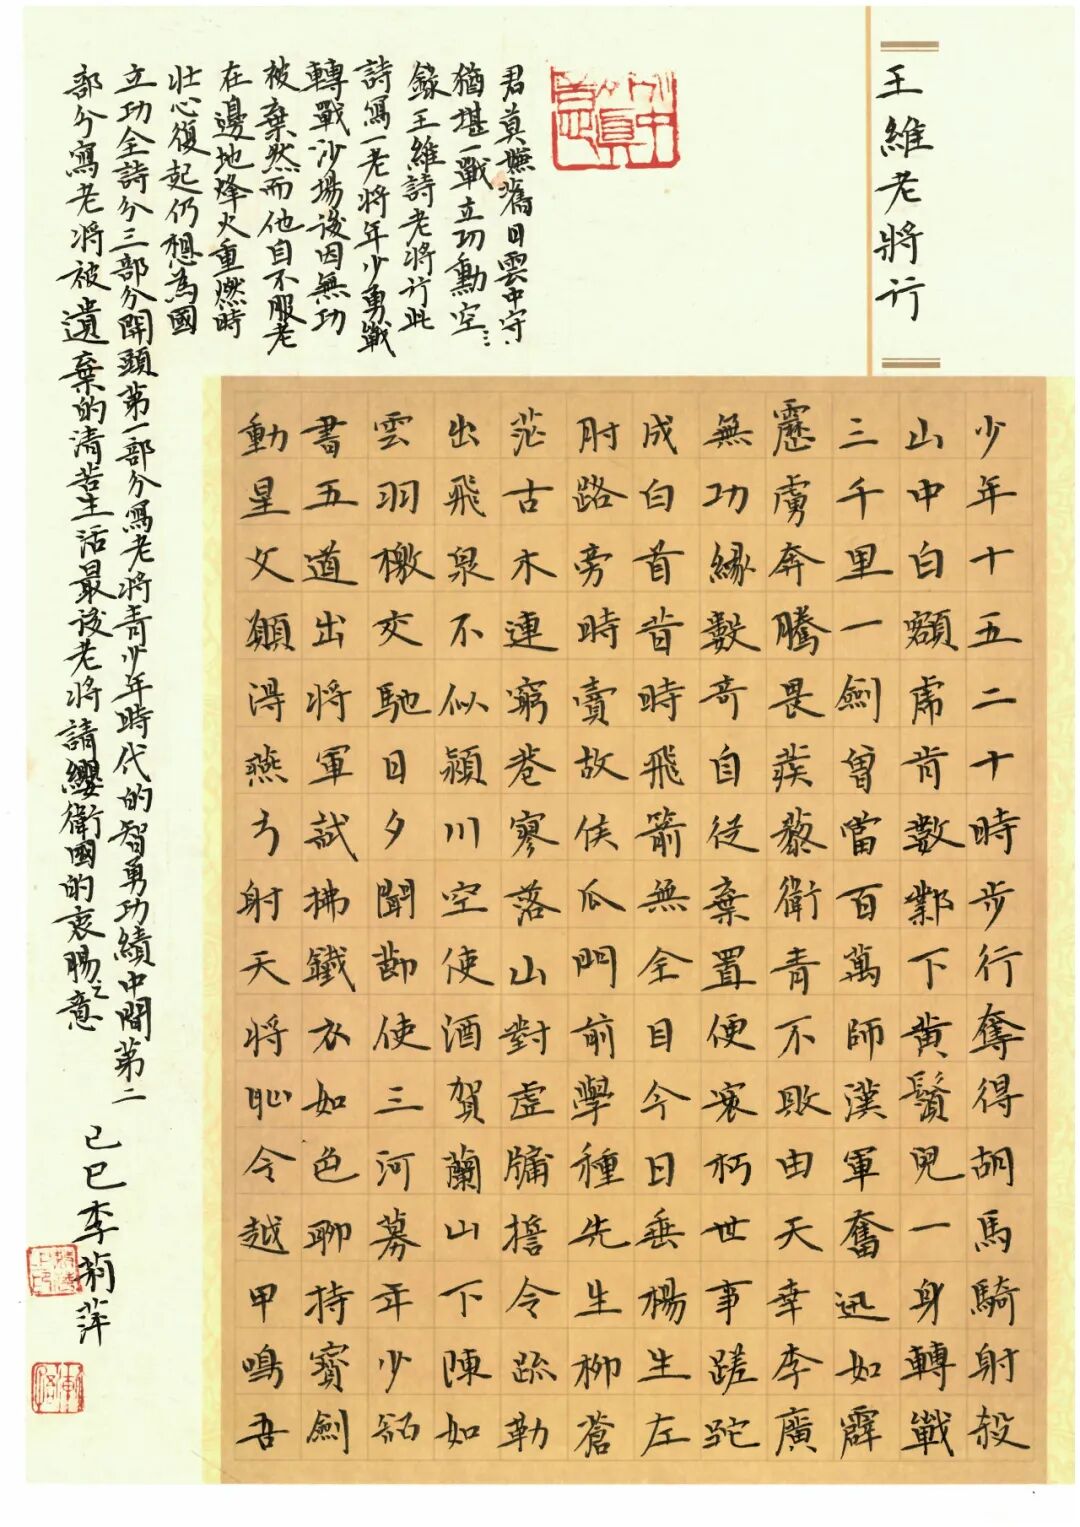 王維老將行
少年十五二十時步行奪得胡馬騎射殺
山中白額虎肯數鄴下黃鬚兒一身轉戰
三千里一劍曾當百萬師漢軍奮迅如霹
靂虜奔騰畏蒺藜衛青不敗由天幸李廣
無功緣數奇自從棄置便衰朽世事蹉跎
成白首昔時飛箭無全目今日垂楊生左
肘路旁時賣故侯瓜門前學種先生柳蒼
茫古木連窮巷寥落山對虛牖誓令疏勒
出飛泉不似潁川空使酒賀蘭山下陳如
雲羽檄交馳日夕聞節使三河募年少詔
書五道出將軍試拂鐵衣如色聊持寶劍
動星文願得燕弓射天將恥令越甲鳴吾
君莫嫌舊日雲中守
猶堪一戰立功勳空…
錄王維詩老將行此
詩寫一老將年少勇戰
轉戰沙場後因無功
被棄然而他自不服老
在邊地烽火重燃時
壯心復起仍想為國
立功全詩分三部分開頭第一部分寫老將青少年時代的智勇功績中間第二
部分寫老將被遺棄的清苦生活最後老將請纓衛國的衷腸之意
己巳李萍